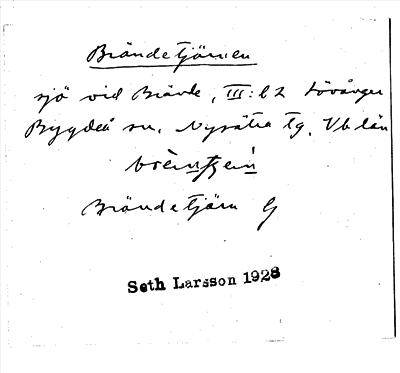 Brändetjärnen
sjö vid Brände, III:l2 Lövånger
Bygdeå sn. Nysätra tg. Vb län
Brändetjärn G
Seth Larsson 1928